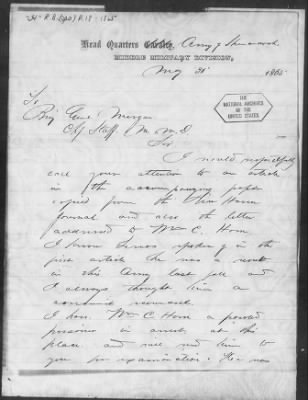 Head Quarters Cavalry, Army of Shenandoah
MIDDLE MILITARY DIVISION,
May 31 1865
THE
NATIONAL ARCHIVES
OF THE
UNITED STATES
To
Brig Genl Morgan
Chf Staff M. M. D.
Sir
I would respectfully
call your attention to an article
in the accompanying paper
copied from the New Haven
Journal and also the letter
addressed to Wm C. Horn
I know
spoken of in the
first article he was a
in this Army last fall and
I always thought him a
I have Wm C Horn a
prisoner in arrest at this
place and will send him to
you for examination. He was